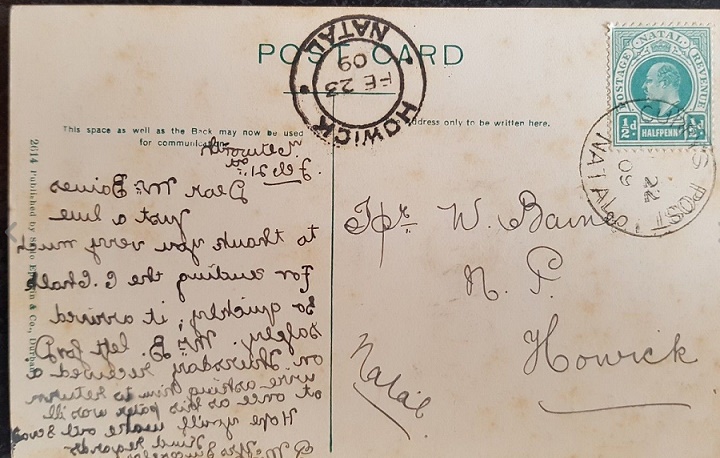 POST CARD
HOWICK
FE 23
09
NATAL
POSTAGE NATAL REVENUE
½d HALFPENNY ½d
POST
22
09
NATAL
This space as well as the Back may now be used
for communication.
Address only to be written here.
2614 Published by Sallo Epstein & Co., Durban
Feb 21st
Dear Mr Baines
Just a line
to thank you very much
for sending the C. Chalk
so quickly, it arrived
safely. Mr B. left for P
on Thursday received a
wire asking him to return
at once as his pater was ill
Hope you'll make out
Kind regards
Yrs Sincerely
Tpr W. Baines
N. P.
Howick
Natal.